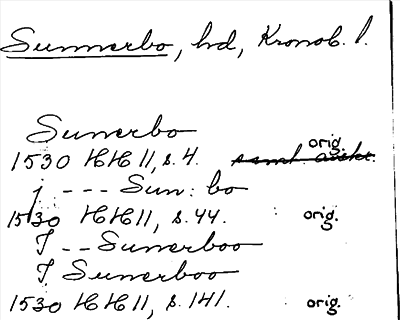 Sunnerbo, hd, Kronob. l.
Sunerbo
orig.
1530 HH II, s. 4. samt. avskr.
j --- Sun: bo
1530 HH II, s. 44. orig.
J -- Sunerboo
J Sunerboo
1530 HH II, s. 141. orig.